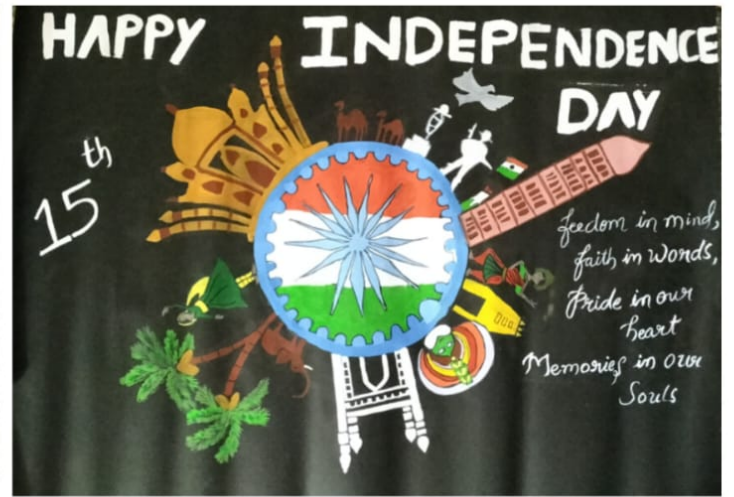 HAPPY INDEPENDENCE
DAY
15th
feedom in mind,
faith in words,
Pride in our
heart
Memories in our
Souls